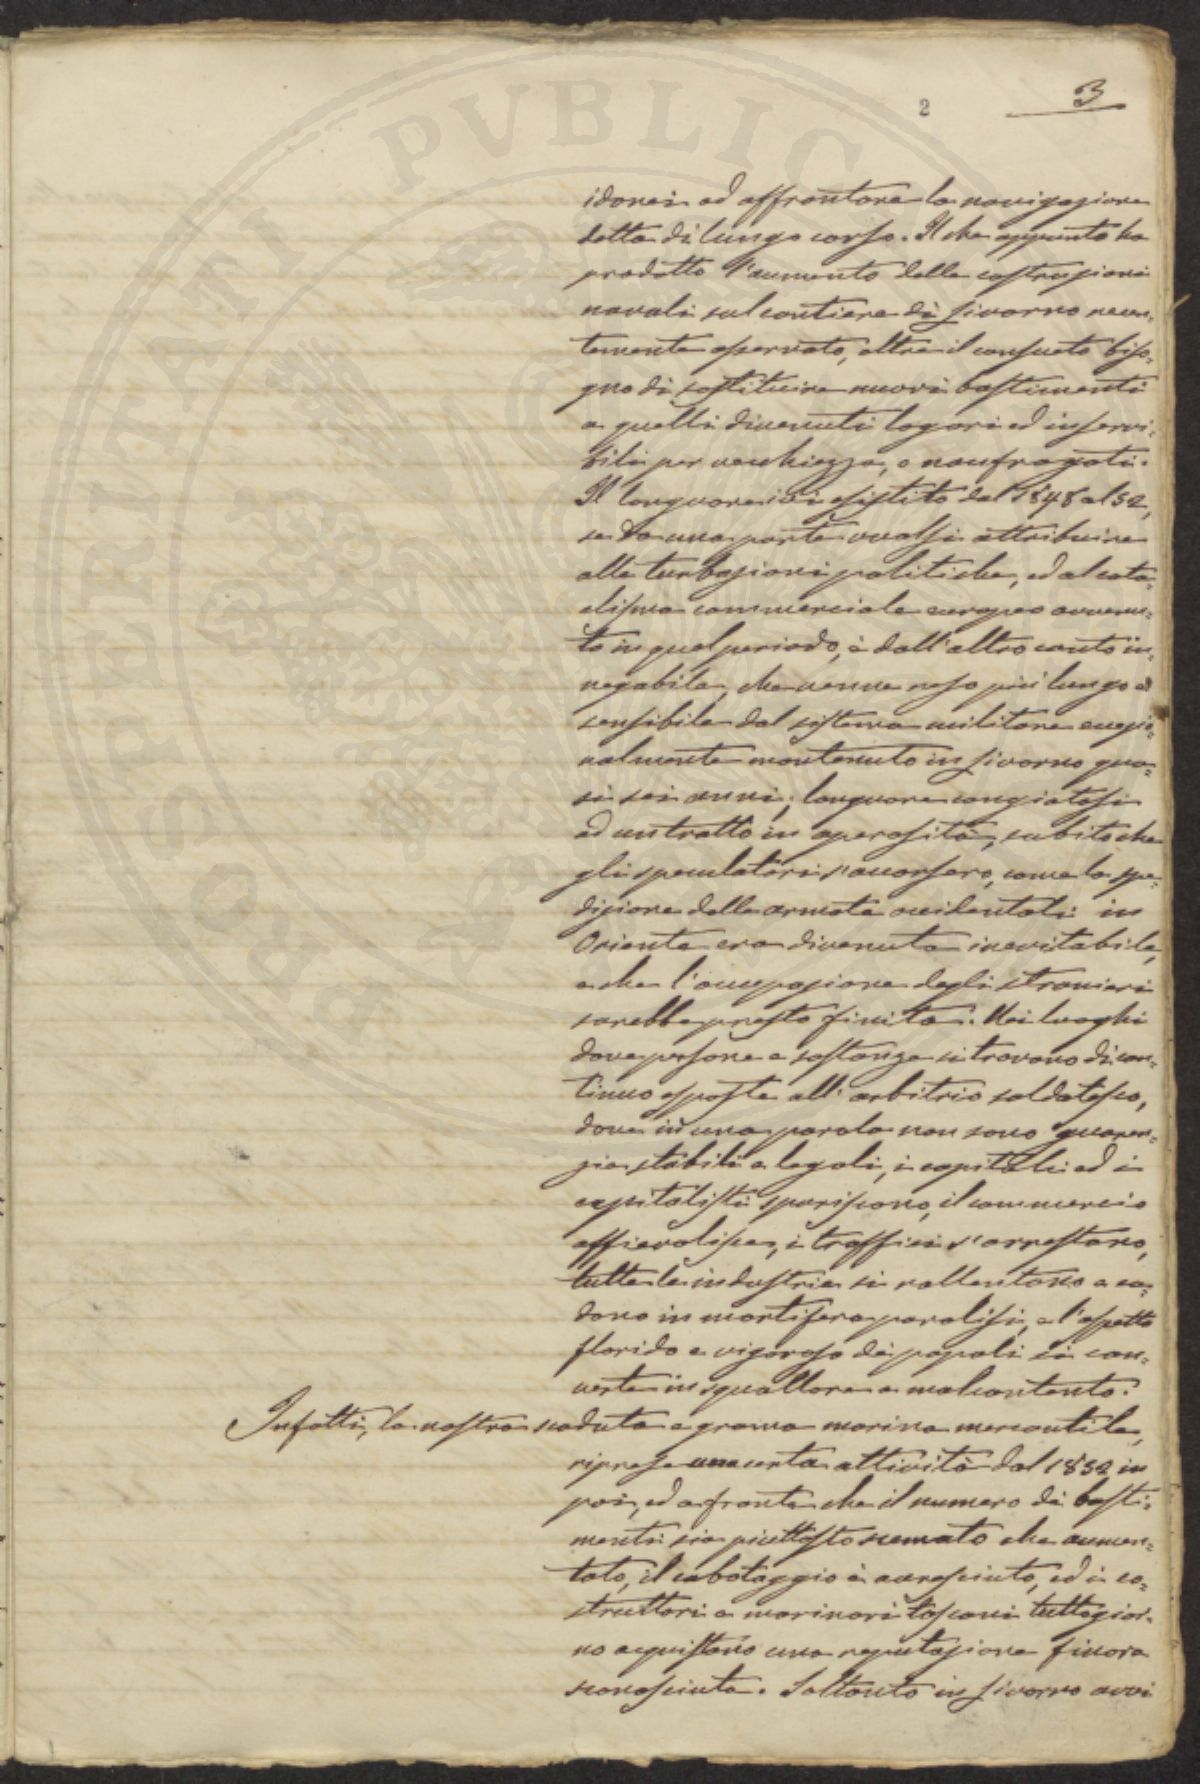 PROSPERITATI PVBLICAE
2
3
idonei ad affrontare la navigazione
detta di lungo corso. Il che appunto ha
prodotto l'aumento delle costruzioni
navali sul cantiere di Livorno recen=
temente osservato, oltre il consueto biso=
gno di sostituire nuovi bastimenti
a quelli divenuti logori ed inservi=
bili per vecchiezza, o naufragati.
Il languore ivi esistito dal 1848 al 52,
se da una parte vuolsi attribuire
alle turbazioni politiche, ed al cata=
clisma commerciale europeo avvenu=
to in quel periodo, è dall'altro canto in=
negabile, che venne reso più lungo e
sensibile dal sistema militare eccezio=
nalmente mantenuto in Livorno qua=
si sei anni; languore cangiatosi
ad un tratto in operosità, subito che
gli speculatori s'accorsero, come la spe=
dizione delle armate occidentali in
Oriente era divenuta inevitabile,
e che l'occupazione degli stranieri
sarebbe presto finita. Nei luoghi
dove persone e sostanze si trovano di con=
tinuo esposte all'arbitrio soldatesco,
dove in una parola non sono guaren=
zie stabili e legali, i capitali ed i
capitalisti spariscono, il commercio
affievolisce, i traffici s'arrestano,
tutte le industrie si rallentano o ca=
dono in mortifera paralisi, e l'aspetto
florido e vigoroso dei popoli si con=
verte in squallore e malcontento.
Infatti, la nostra scaduta e grama marina mercantile,
riprese una certa attività dal 1852 in
poi, ed a fronte che il numero di basti=
menti sia piuttosto scemato che aumen=
tato, il cabotaggio è accresciuto, ed i co=
struttori e marinari toscani tuttogior=
no acquistano una reputazione finora
sconosciuta. Soltanto in Livorno avvi